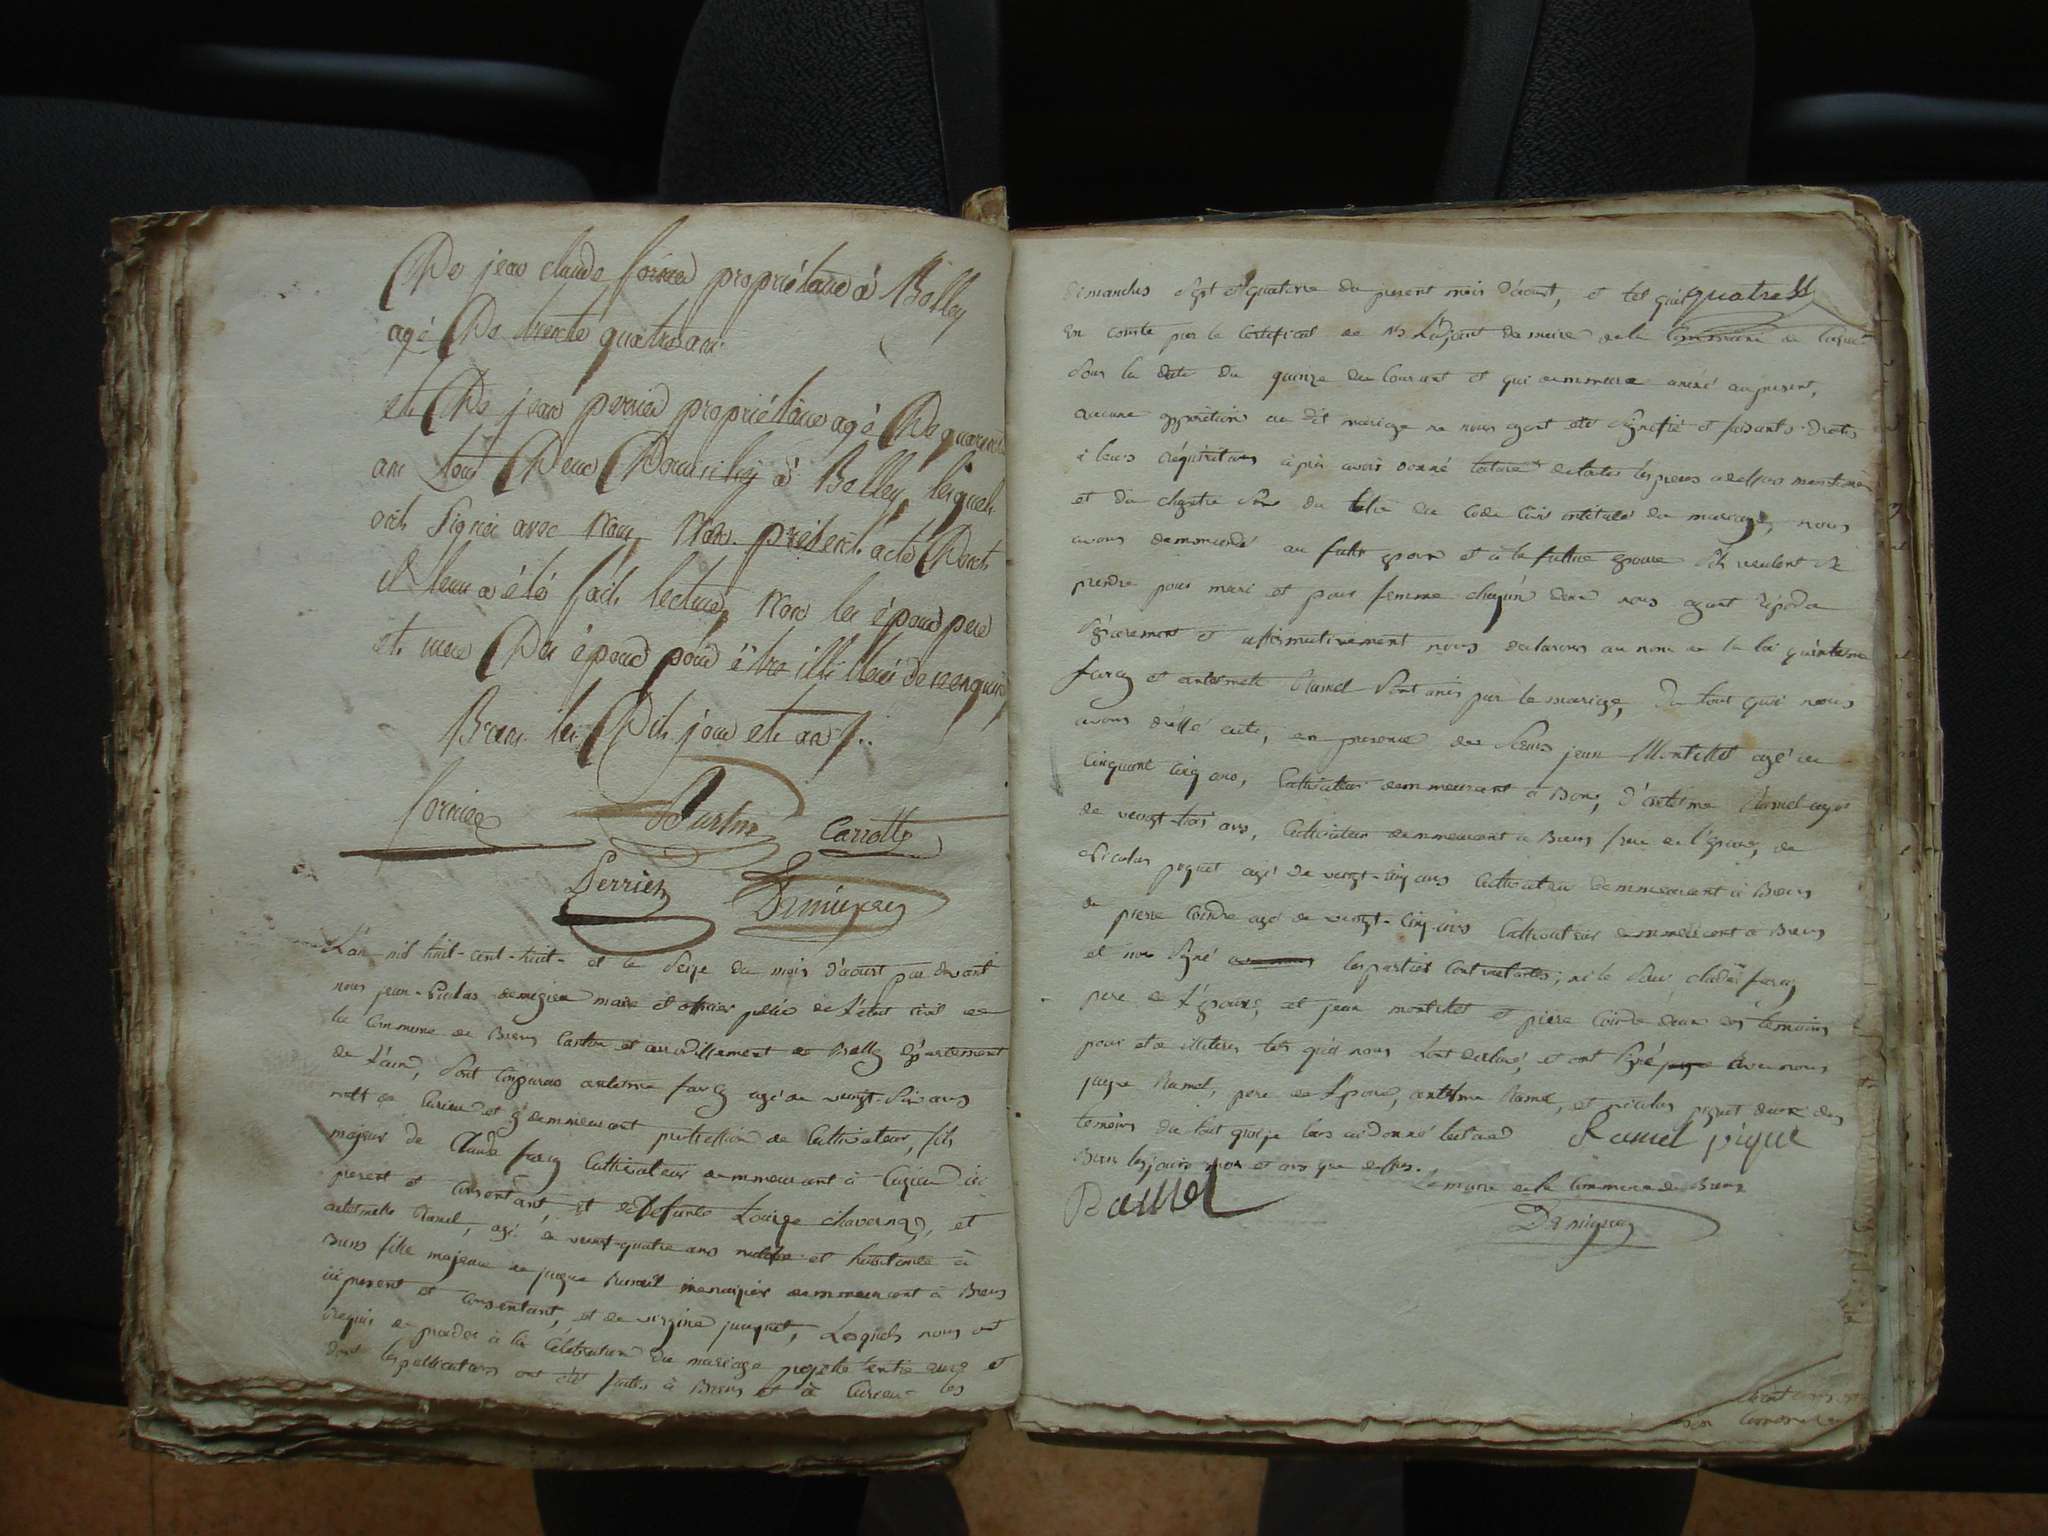 De jean claude fornier propriétaire à Belley
agé De trente quatre ans
et De jean perrier propriétaire agé De quarente
ans tous Deux Domiciliés à Belley lesquels
ont signé avec Nous Non présent acte Dont
il leur a été fait lecture, Non les époux pere
et mere Des époux pour être illitterés de ce enquis
Brens les Dit jour et an
fornier Burlin Carrotte
Perrier Demigieu
L'an mil huit-cent-huit et le seize du mois d'aoust par devant
nous jean-nicolas demigieu maire et officier public de l'état civil de
la commune de Brens canton et arrondissement de Belley département
de l'ain, sont comparus antelme fucy agé de vingt-six ans
natif de Cuzieu et y demmeurant profession de cultivateur, fils
majeur de Claude fucy cultivateur demmeurant à Cuzieu ici
present et consentant, et de defunte Louise chavernos, et
antelmette Ramel, agé de vingt-quatre ans native et habitante à
Brens fille majeure de jaque Ramel demmeurant à Brens
ici present et consentant, et de virgine juquet, Lesquels nous ont
requis de proceder à la célébration du mariage projetté entre eux et
dont les publications ont été faites à Brens et à Cuzieu les
dimanches sept et quatorze du present mois d'aoust, et tel qu'il
quatre
en conste par le certificat de Mr L'ajoint de maire de la commune de Cuzieu
sous la date du quinze du courant et qui demmeure anexé au present,
aucune opposition au dit mariage ne nous ayant été signifié et faisants droits
à leurs réquisitions après avoir donné lecture de toutes les pieces cydessus mentionées
et du chapitre six du titre du code civil intitulé du mariage, nous
avons demmandé au futur epoux et à la future epouse s'ils veulent se
prendre pour mari et pour femme chacun deux nous ayant répondu
séparement et affirmativement nous declarons au nom de la loi qu'antelme
fucy et antelmette Ramel sont unis par le mariage, du tout quoi nous
avons dressé acte, en presence des sieurs jean Montillet agé de
cinquante cinq ans, cultivateur demmeurant à Brens, d'antelme Ramel agé
de vingt-trois ans, cultivateur demmeurant à Brens frere de l'épouse, de
nicolas piquet agé de vingt-cinq ans cultivateur demmeurant à Brens
de pierre coindre agé de vingt-cinq ans cultivateur demmeurant à Brens
et non signé les parties contractantes; ni le sieur claude fucy
pere de l'époux, et jean montillet et pierre coindre deux des temoins
pour etre illiteres tels qu'ils nous l'ont declaré, et ont signé avec nous
jaque Ramel, pere de l'epouse, antelme Ramel, et nicolas piquet deux des
temoins du tout quoi je leurs ai donné lecture Ramel piquet
Brens les jours mois et ans que dessus.
Le maire de la commune de Brens
Ramel
Demigieu